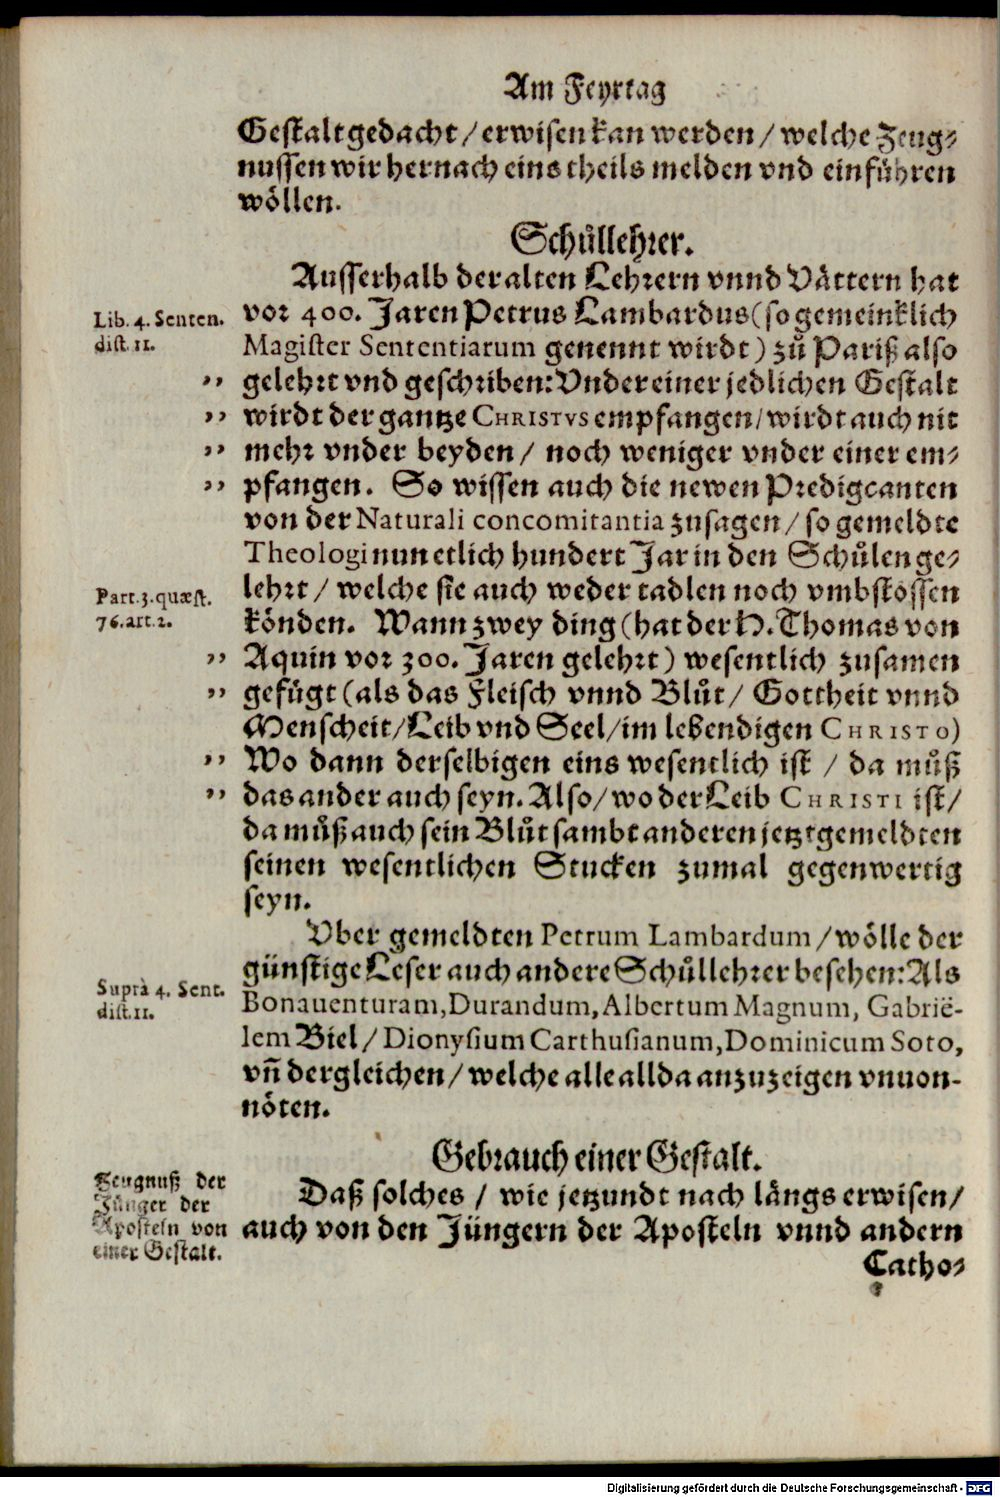 Am Feyrtag
Gestalt gedacht / erwisen kan werden / welche Zeug-
nussen wir hernach eins theils melden vnd einführen
wöllen.
Schůllehrer.
Ausserhalb der alten Lehrern vnnd Våttern hat
Lib. 4. Senten.
dist. 11.
vor 400. Jaren Petrus Lambardus (so gemeinklich
Magister Sententiarum genennt wirdt) zů Pariß also
,, gelehrt vnd geschriben: Vnder einer jedlichen Gestalt
,, wirdt der gantze CHRISTVS empfangen / wirdt auch nit
,, mehr vnder beyden / noch weniger vnder einer em-
,, pfangen. So wissen auch die newen Predigcanten
von der Naturali concomitantia zusagen / so gemeldte
Theologi nun etlich hundert Jar in den Schůlen ge-
Part. 3. quæst.
76. art. 2.
lehrt / welche sie auch weder tadlen noch vmbstossen
könden. Wann zwey ding (hat der H. Thomas von
,, Aquin vor 300. Jaren gelehrt) wesentlich zusamen
,, gefügt (als das Fleisch vnnd Blůt / Gottheit vnnd
Menscheit / Leib vnd Seel / im lebendigen CHRISTO)
,, Wo dann derselbigen eins wesentlich ist / da můß
,, das ander auch seyn. Also / wo der Leib CHRISTI ist /
da můß auch sein Blůt sambt anderen jetztgemeldten
seinen wesentlichen Stucken zumal gegenwertig
seyn.
Vber gemeldten Petrum Lambardum / wölle der
günstige Leser auch andere Schůllehrer besehen: Als
Suprà 4. Sent.
dist. 11.
Bonauenturam, Durandum, Albertum Magnum, Gabrië-
lem Biel / Dionysium Carthusianum, Dominicum Soto,
vñ dergleichen / welche alle allda anzuzeigen vnuon-
nöten.
Gebrauch einer Gestalt.
Zeugnuß der
Jünger der
Aposteln von
einer Gestalt.
Daß solches / wie jetzundt nach längs erwisen /
auch von den Jüngern der Aposteln vnnd andern
Catho-
Digitalisierung gefördert durch die Deutsche Forschungsgemeinschaft - DFG